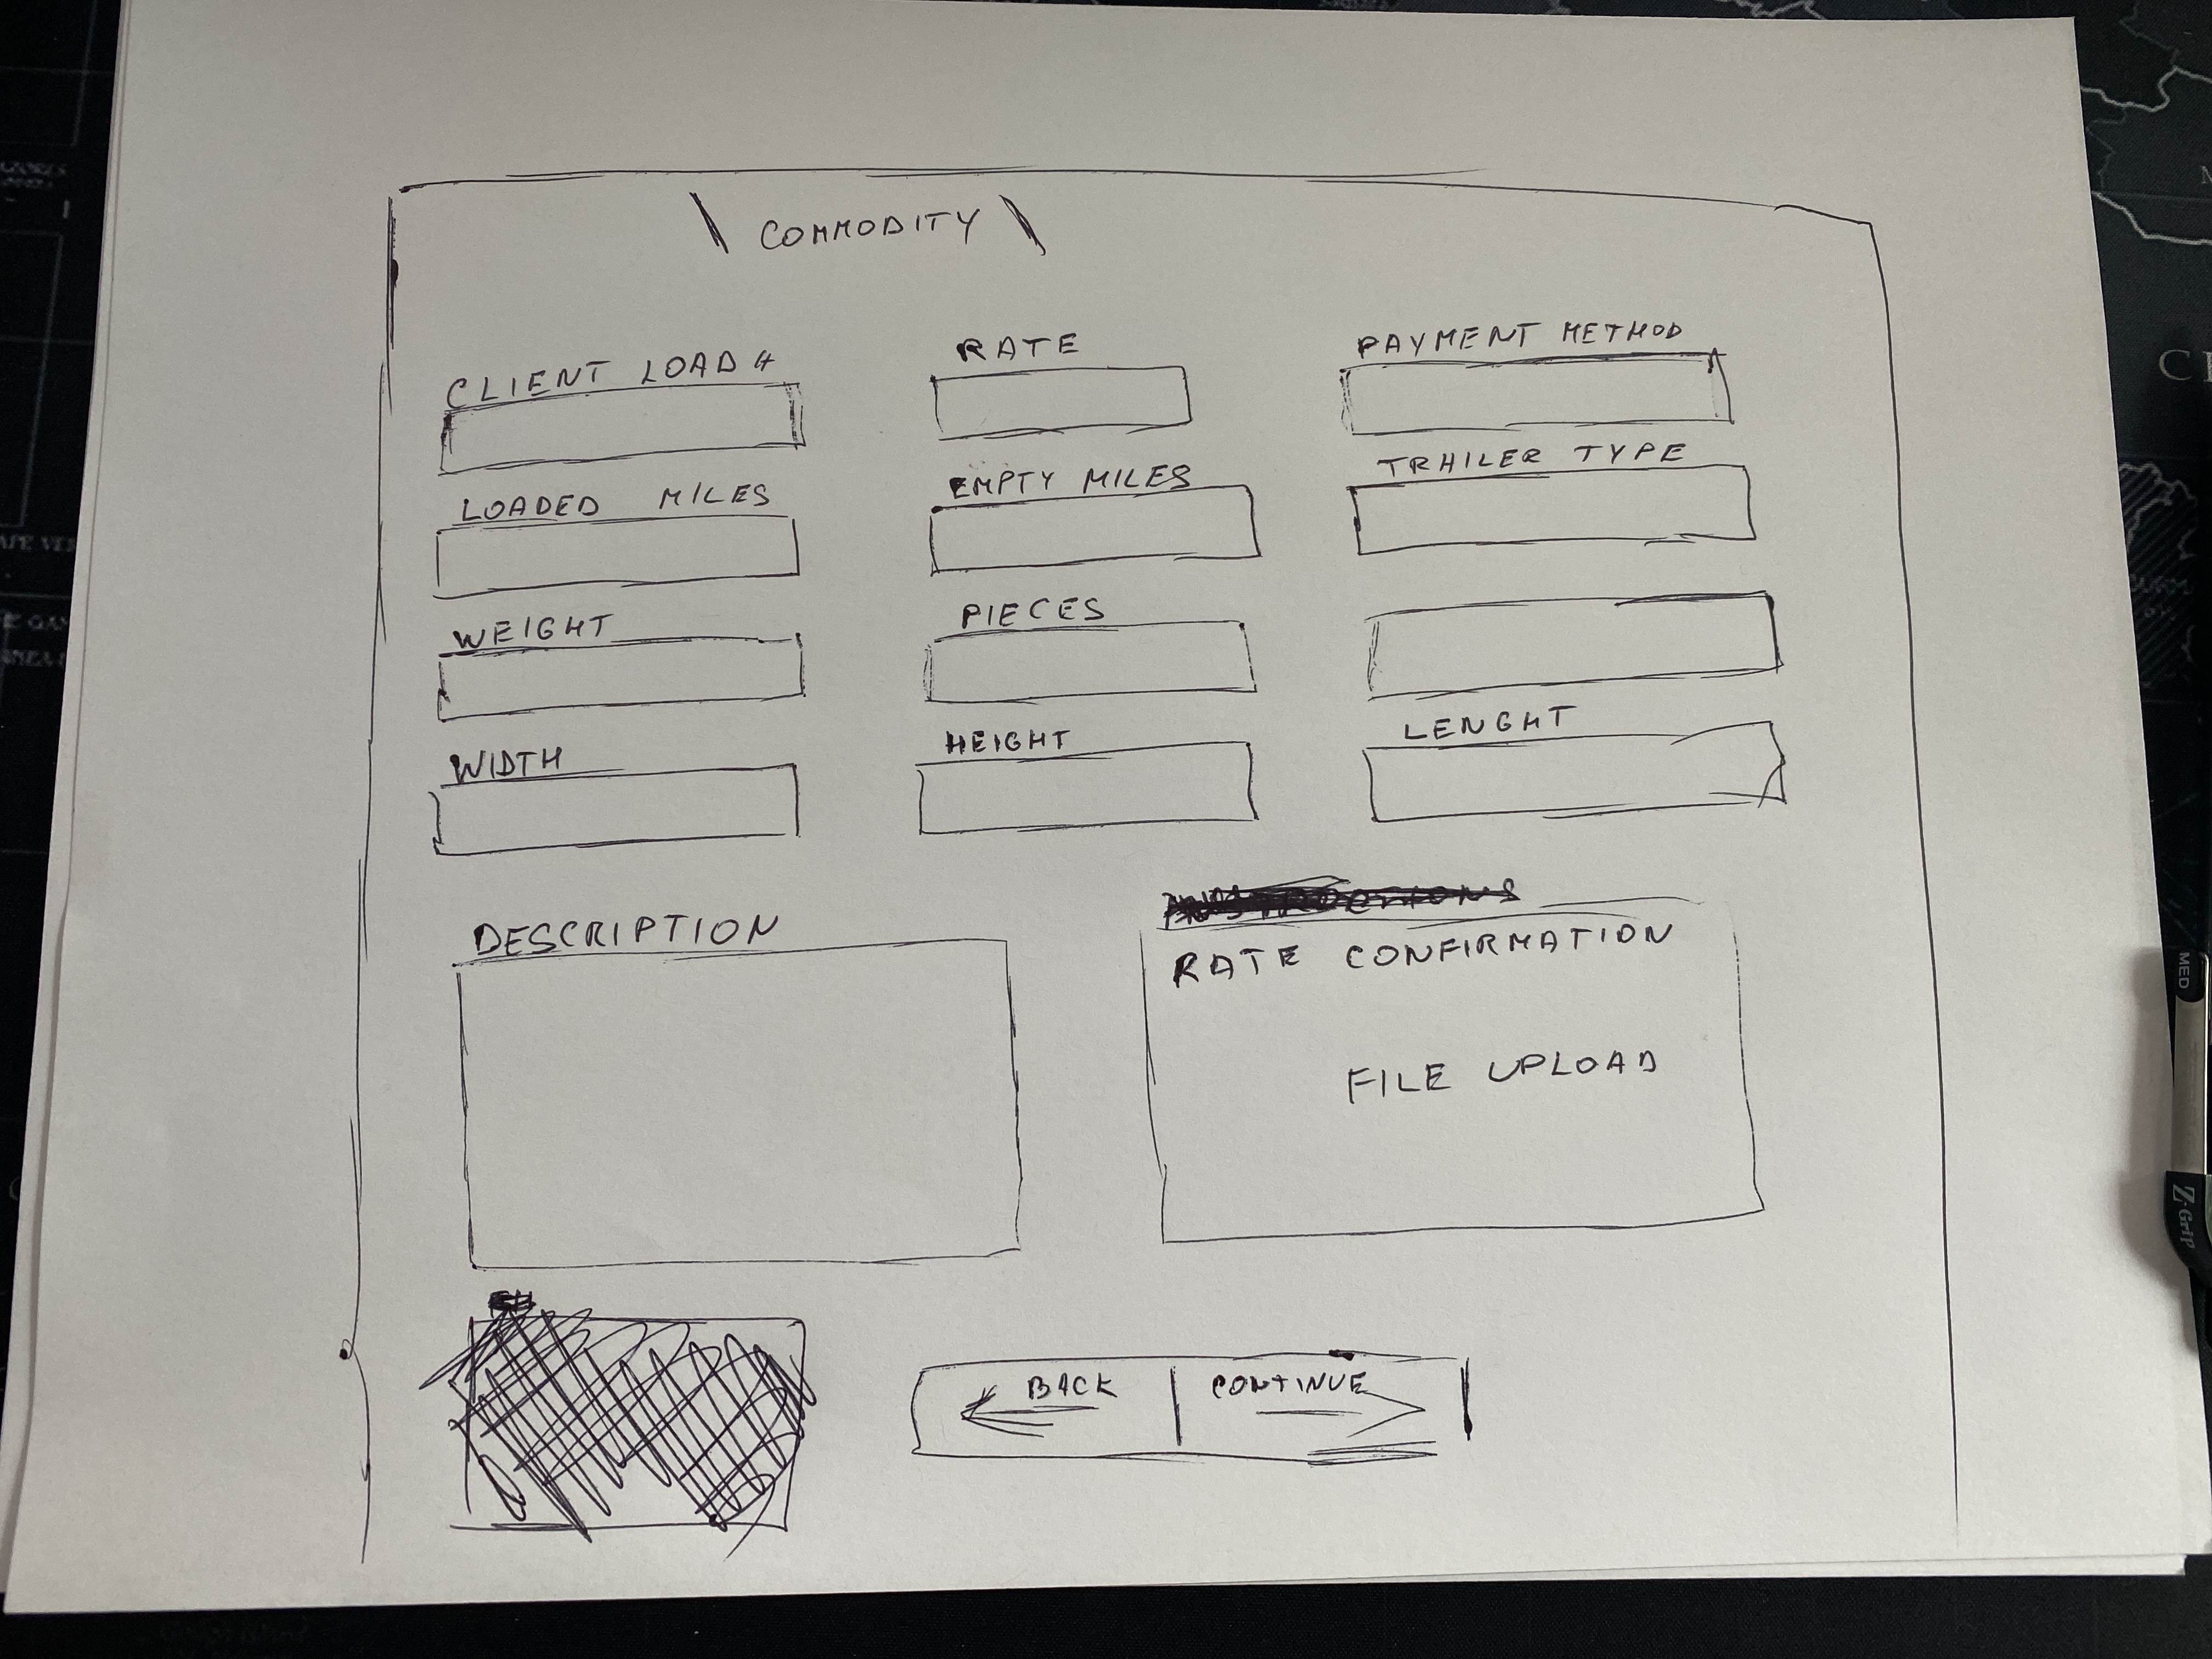 COMMODITY
CLIENT LOAD #
RATE
PAYMENT METHOD
LOADED MILES
EMPTY MILES
TRHILER TYPE
WEIGHT
PIECES
WIDTH
HEIGHT
LENGHT
DESCRIPTION
RATE CONFIRMATION
FILE UPLOAD
BACK
CONTINUE
MED
Z-Grip